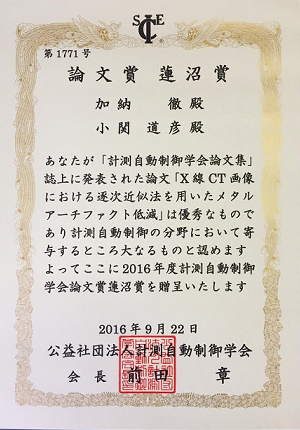 SICE
第1771号
論文賞 蓮沼賞
加納 徹殿
小関 道彦殿
あなたが「計測自動制御学会論文集」
誌上に発表された論文「X線CT画像
における逐次近似法を用いたメタル
アーチファクト低減」は優秀なもので
あり計測自動制御の分野において寄
与するところ大なるものと認めます
よってここに2016年度計測自動制御
学会論文賞蓮沼賞を贈呈いたします
2016年9月22日
公益社団法人計測自動制御学会
会長 前田 章